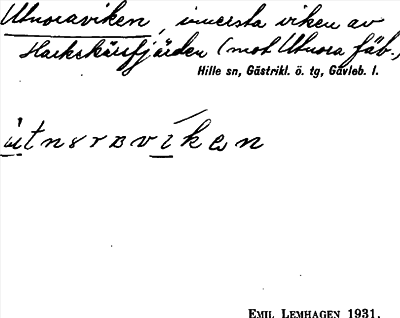 Utnoraviken, innersta viken av
Harkskärsfjärden (mot Utnora fäb.)
Hille sn, Gästrikl. ö. tg, Gävleb. l.
EMIL LEMHAGEN 1931.